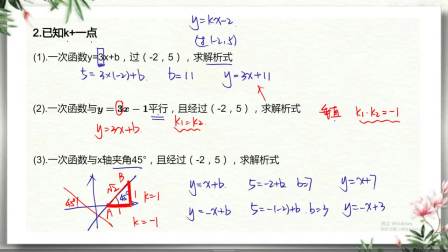 y=kx-2
2.已知k+一点
(过(-2,5)
(1).一次函数y=3x+b，过（-2，5），求解析式
5=3×(-2)+b b=11 y=3x+11
(2).一次函数与y=3x-1平行，且经过（-2，5），求解析式
垂直 k₁·k₂=-1
y=3x+b k₁=k₂
(3).一次函数与x轴夹角45°，且经过（-2，5），求解析式
B
45° √2 45° 1 k=1
A 1
k=-1
y=x+b 5=-2+b b=7 y=x+7
y=-x+b 5=-(-2)+b b=3 y=-x+3